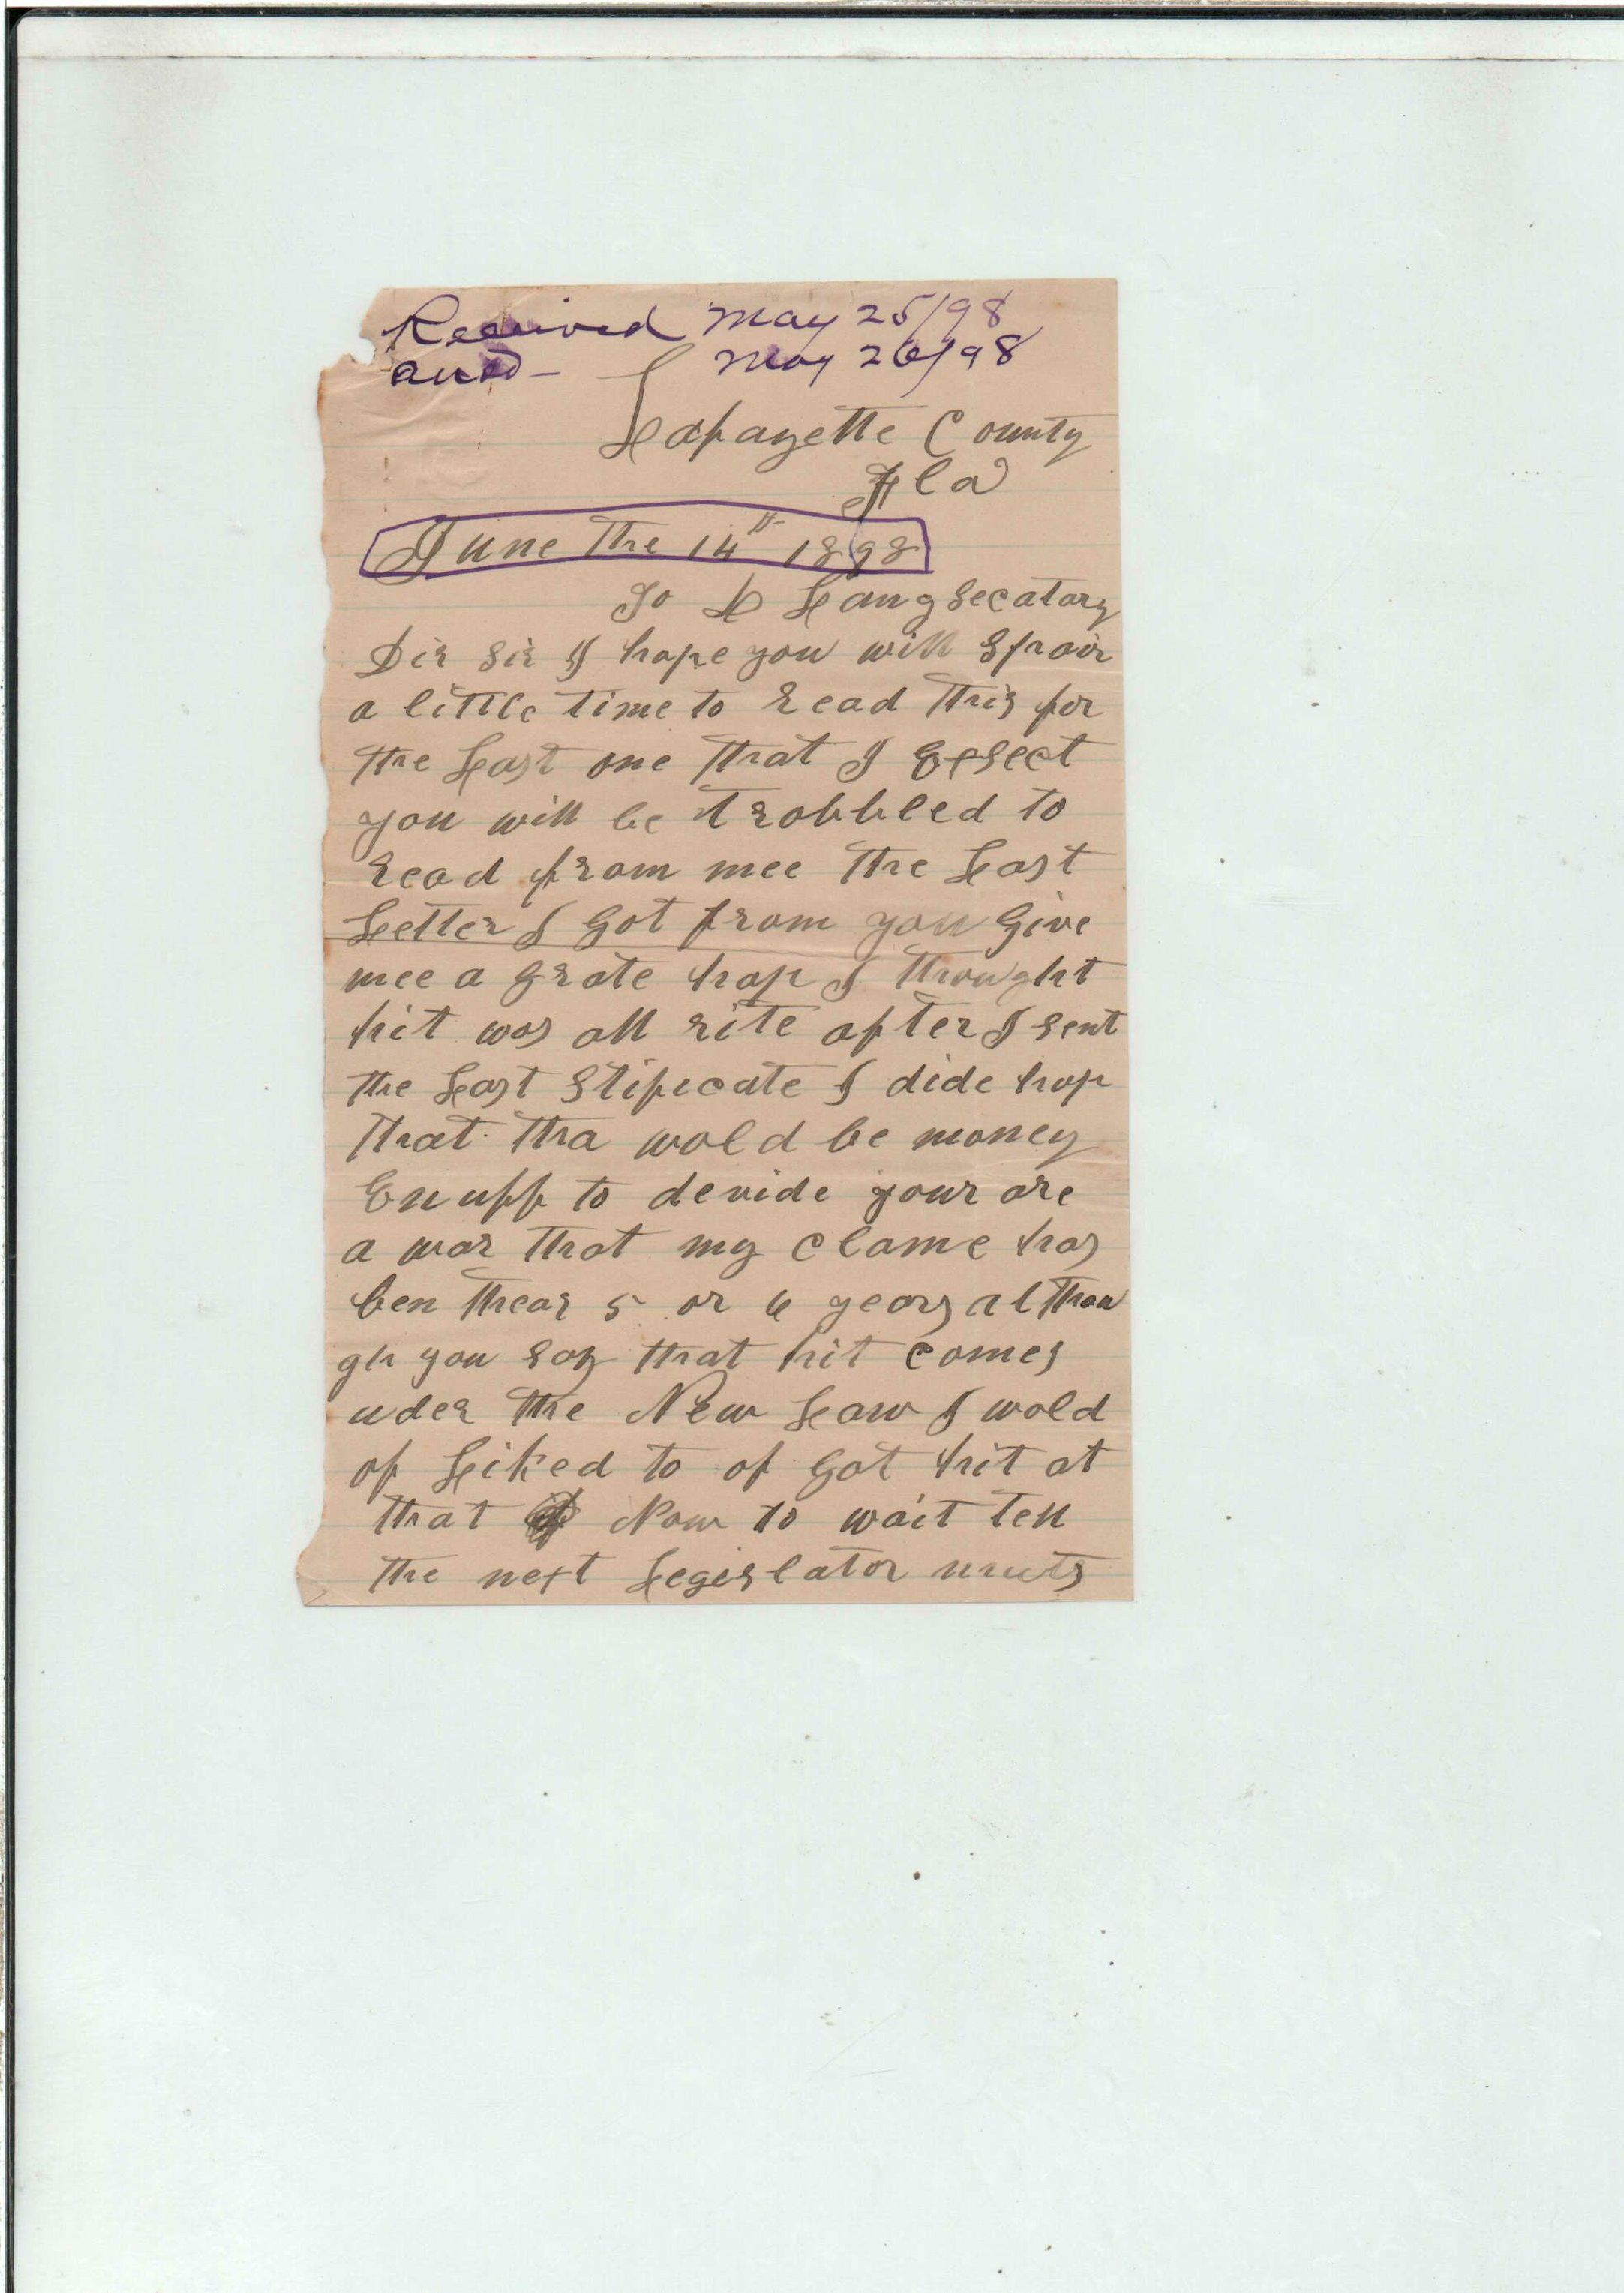 Received May 25/98
ansd- May 26/98
Lafayette County
Fla
June the 14th 1898
To D Lang Secatary
Dir Sir I hope you will Spair
a little time to read this for
the Last one that I Epsect
you will be trobbled to
read from mee the Last
Letter I Got from you Give
mee a grate hop I thought
hit was all rite after I sent
the Last Stificate I dide hop
that tha wold be money
Enuff to devide your are
a war that my clame has
ben thear 5 or 6 years althou
gh you say that hit comes
uder the New Law I wold
of Liked to of Got hit at
that Now to wait tell
the next Legislator